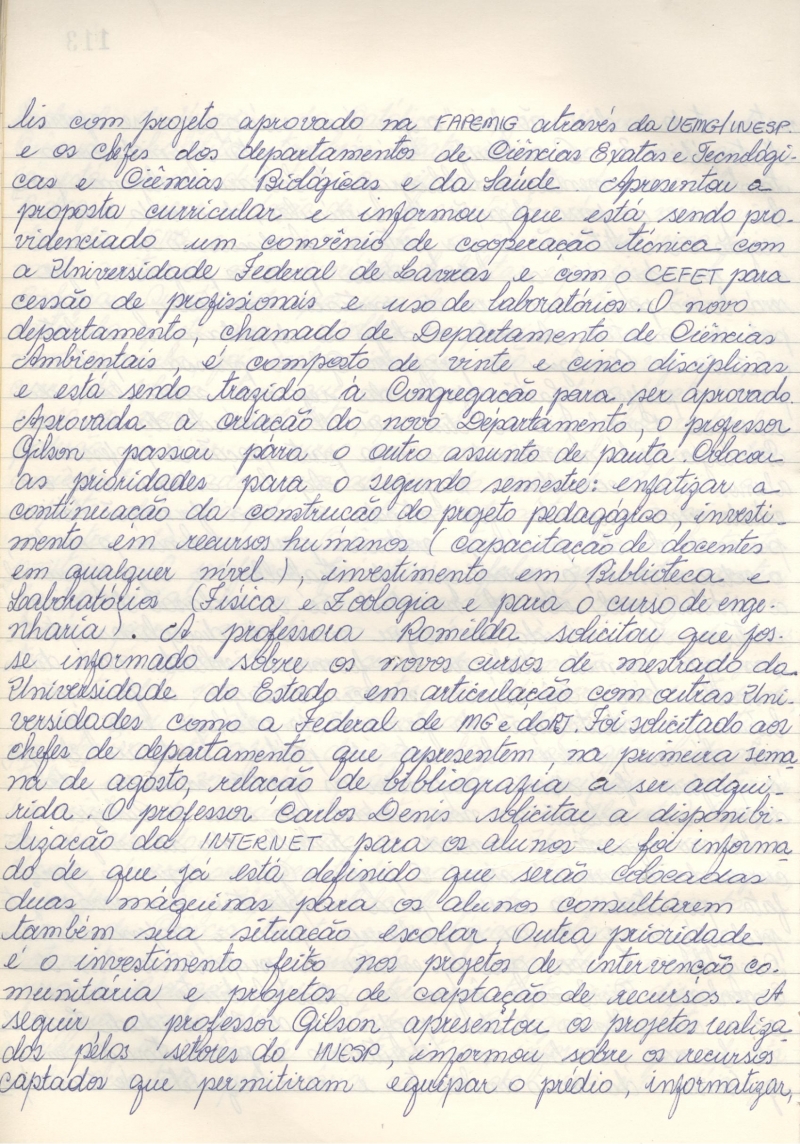 113
lis com projeto aprovado na FAPEMIG através da UEMG/INESP.
e os chefes dos departamentos de Ciências Exatas e Tecnológi-
cas e Ciências Biológicas e da Saúde. Apresentou a
proposta curricular e informou que está sendo pro-
videnciado um convênio de cooperação técnica com
a Universidade Federal de Lavras e com o CEFET para
cessão de profissionais e uso de laboratórios. O novo
departamento, chamado de Departamento de Ciências
Ambientais, é composto de vinte e cinco disciplinas
e está sendo trazido à Congregação para ser aprovado.
Aprovada a criação do novo Departamento, o professor
Gilson passou para o outro assunto de pauta. Colocou
as prioridades para o segundo semestre: enfatizar a
continuação da construção do projeto pedagógico, investi-
mento em recursos humanos (capacitação de docentes
em qualquer nível), investimento em Biblioteca e
Laboratórios (Física e Zoologia e para o curso de enge-
nharia). A professora Romilda solicitou que fos-
se informado sobre os novos cursos de mestrado da
Universidade do Estado em articulação com outras Uni-
versidades como a Federal de MG e do RJ. Foi solicitado aos
chefes de departamento que apresentem, na primeira sema-
na de agosto, relação de bibliografia a ser adqui-
rida. O professor Carlos Denis solicitou a disponibi-
lização da INTERNET para os alunos e foi informa-
do de que já está definido que serão colocadas
duas máquinas para os alunos consultarem
também sua situação escolar. Outra prioridade
é o investimento feito nos projetos de intervenção co-
munitária e projetos de captação de recursos. A
seguir, o professor Gilson apresentou os projetos realiza-
dos pelos setores do INESP, informou sobre os recursos
captados que permitiram equipar o prédio, informatizar,